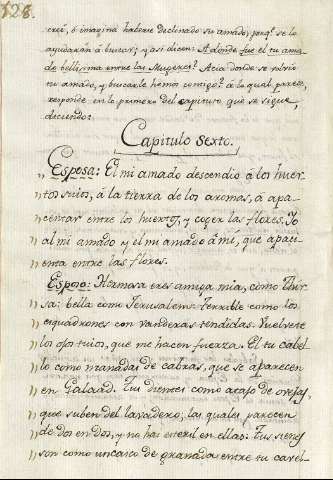 128.
creé, ó imagina haverse declinado su amado, porqᵉ se lo
ayudarán á buscar; y asi dicen: A donde fue el tu ama-
do bellisima entre las Mugeres? Acia donde se volvió
tu amado, y buscarle hémos contigo? á la qual parece,
responde en lo primero del capitulo que se sigue,
diciendo:
Capitulo Sexto.
" Esposa: El mi amado descendió á los huer-
" tos suios, á la tierra de los aromas, á apa-
" centar entre los huertos, y coger las flores. Yo
" al mi amado y el mi amado á mi, que apaci-
" enta entre las flores.
" Esposo: Hermosa eres amiga mia, como Thir-
" sa: bella como Jerusalem: Terrible como los
" esquadrones con vanderas tendidas. Vuelveme
" los ojos tuios, que me hacen fuerza. El tu cabel-
" lo como manadas de cabras, que se aparecen
" en Galaad. Tus dientes como atajo de ovejas,
" que suben del lavadero; las quales parecen
" de dos en dos, y no hai esteril en ellas: Tus sienes
" son como un casco de granada entre tu cavel-